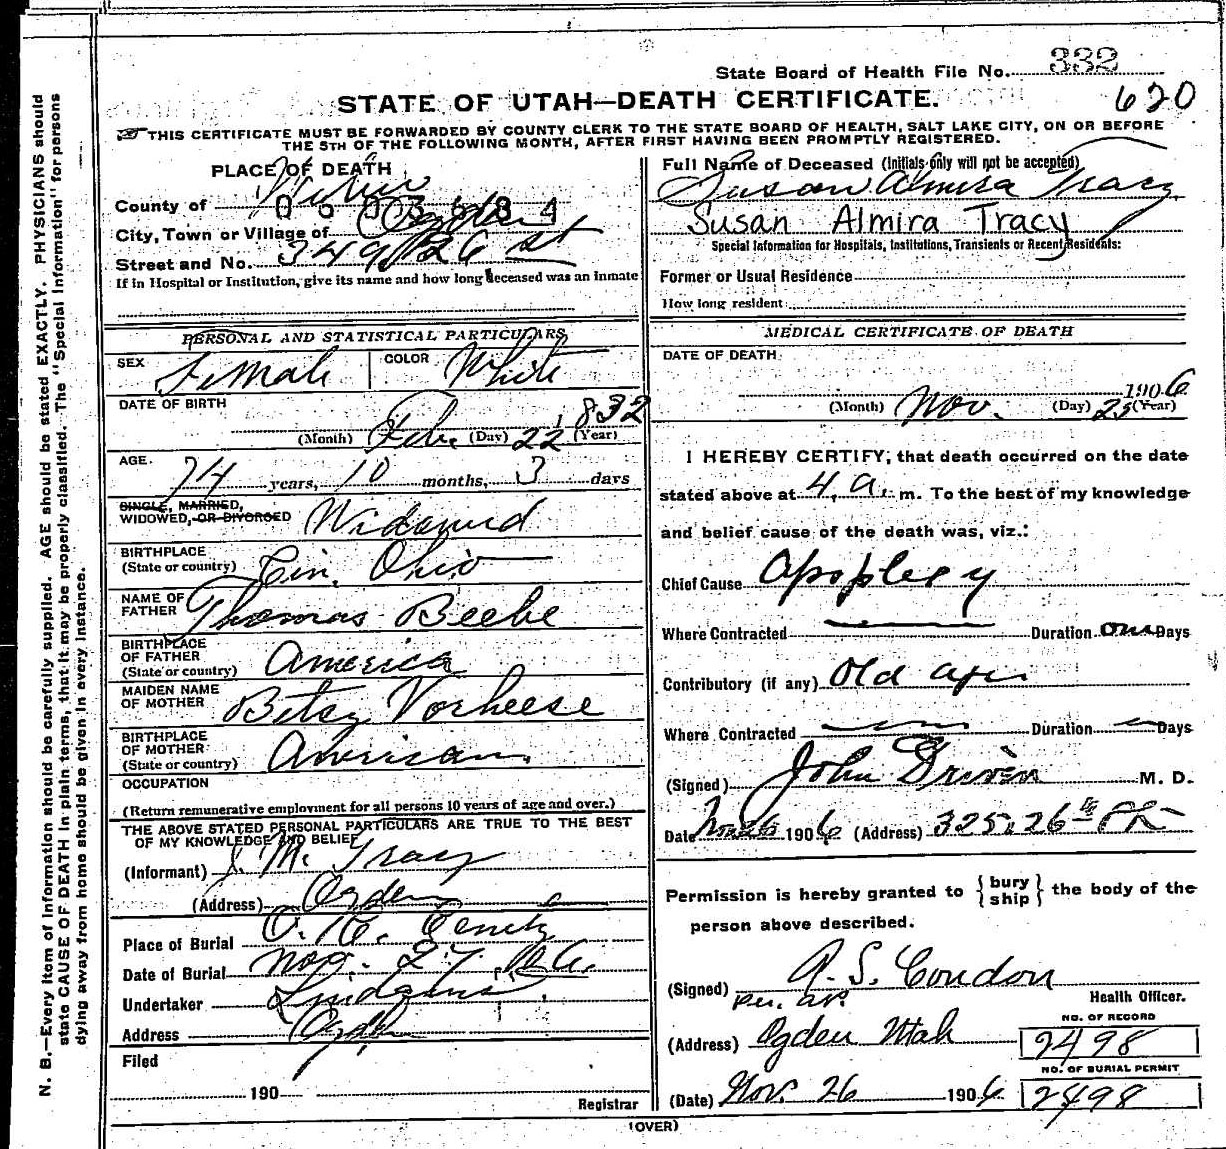 State Board of Health File No. 332
620
STATE OF UTAH—DEATH CERTIFICATE.
THIS CERTIFICATE MUST BE FORWARDED BY COUNTY CLERK TO THE STATE BOARD OF HEALTH, SALT LAKE CITY, ON OR BEFORE
THE 5TH OF THE FOLLOWING MONTH, AFTER FIRST HAVING BEEN PROMPTLY REGISTERED.
PLACE OF DEATH
County of Weber
City, Town or Village of Ogden
Street and No. 349 26 st
If in Hospital or Institution, give its name and how long deceased was an inmate
Full Name of Deceased (Initials only will not be accepted)
Susan Almira Tracy
Susan Almira Tracy
Special Information for Hospitals, Institutions, Transients or Recent Residents:
Former or Usual Residence
How long resident
PERSONAL AND STATISTICAL PARTICULARS
SEX Female COLOR White
DATE OF BIRTH
(Month) Feb. (Day) 22 1832 (Year)
AGE. 74 years, 10 months, 3 days
SINGLE, MARRIED,
WIDOWED, OR DIVORCED Widowed
BIRTHPLACE
(State or country) Cin. Ohio
NAME OF
FATHER Thomas Beebe
BIRTHPLACE
OF FATHER
(State or country) America
MAIDEN NAME
OF MOTHER Betsy Vorheese
BIRTHPLACE
OF MOTHER
(State or country) American
OCCUPATION
(Return remunerative employment for all persons 10 years of age and over.)
THE ABOVE STATED PERSONAL PARTICULARS ARE TRUE TO THE BEST
OF MY KNOWLEDGE AND BELIEF
(Informant) J. M. Tracy
(Address) Ogden
Place of Burial
Date of Burial Nov. 27, 06.
Undertaker
Address Ogden
Filed
190
Registrar
MEDICAL CERTIFICATE OF DEATH
DATE OF DEATH
1906
(Month) Nov. (Day) 25 (Year)
I HEREBY CERTIFY, that death occurred on the date
stated above at 4 a. m. To the best of my knowledge
and belief cause of the death was, viz.:
Chief Cause Apoplexy
Where Contracted Duration one Days
Contributory (if any) Old age
Where Contracted Duration Days
(Signed) John Driven M. D.
Date 1906 (Address) 325, 26th St
Permission is hereby granted to {bury ship} the body of the
person above described.
(Signed) A. S. Condon
Health Officer.
(Address) Ogden Utah
NO. OF RECORD
2498
NO. OF BURIAL PERMIT
2498
(Date) Nov. 26 1906
(OVER)
N. B.—Every item of information should be carefully supplied. AGE should be stated EXACTLY. PHYSICIANS should
state CAUSE OF DEATH in plain terms, that it may be properly classified. The "Special Information" for persons
dying away from home should be given in every instance.